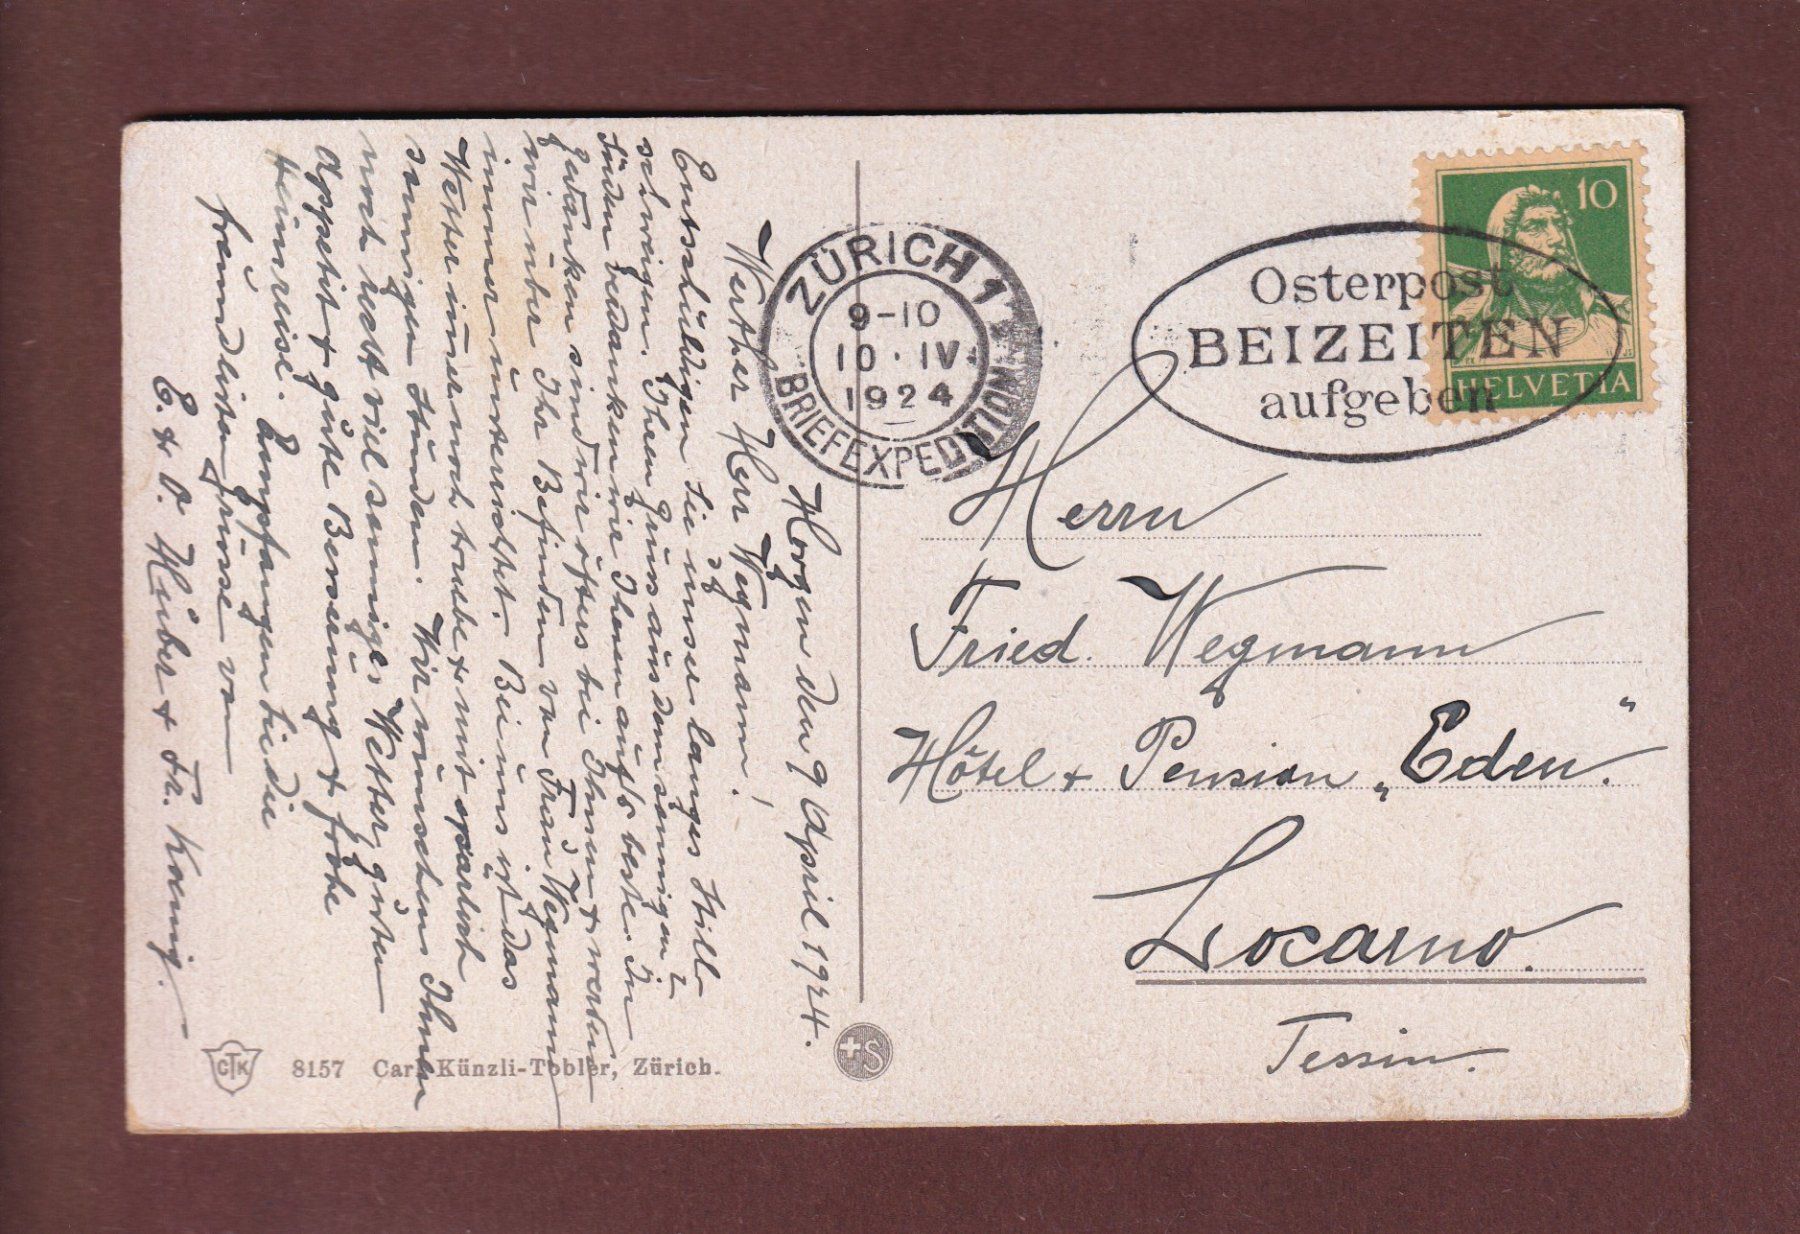 Horgen den 9 April 1924.
Werther Herr Wegmann!
Entschuldigen Sie unser langes Still-
schweigen. Ihren Gruss aus dem sonnigen
Süden verdanken wir Ihnen aufs beste. In
Gedanken sind wir öfters bei Ihnen & werden
wir über Ihr Befinden von Frau Wegmann
immer unterrichtet. Bei uns ist das
Wetter immer noch trübe & mit spärlich
sonnigen Stunden. Wir wünschen Ihnen
noch recht viel sonniges Wetter, guten
Appetit & gute Besserung & frohe
Heimreise. Empfangen Sie die
freundlichen Grüsse von
E. & O. Huber & Fr. Koenig.
CTK 8157 Carl Künzli-Tobler, Zürich.
+S
ZÜRICH 1
9-10
10·IV.
1924
BRIEFEXPEDITION
Osterpost
BEIZEITEN
aufgeben
10
HELVETIA
Herrn
Fried. Wegmann
Hôtel & Pension „Eden."
Locarno.
Tessin.